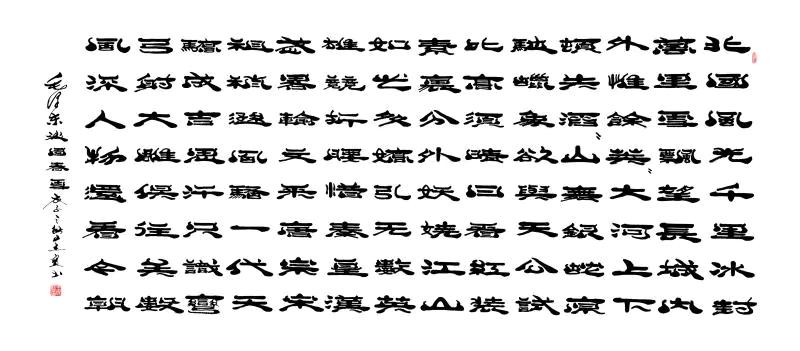 北國風光千里冰封
萬里雪飄望長城内
外惟餘莽〃大河上下
頓失滔〃山舞銀蛇原
馳蠟象欲與天公試
比高須晴日看紅裝
素裹分外妖嬈江山
如此多嬌引无數英
雄競折腰惜秦皇漢
武畧輸文采唐宗宋
祖稍遜風騷一代天
驕成吉思汗只識彎
弓射大雕俱往矣數
風流人物還看今朝
毛澤東沁園春雪